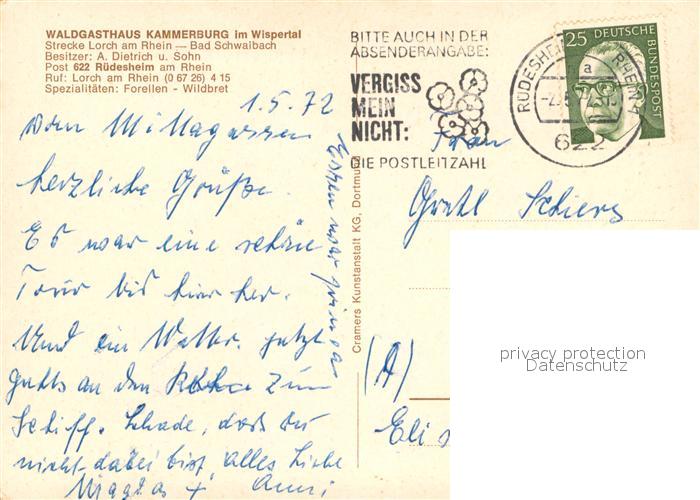 WALDGASTHAUS KAMMERBURG im Wispertal
Strecke Lorch am Rhein — Bad Schwalbach
Besitzer: A. Dietrich u. Sohn
Post 622 Rüdesheim am Rhein
Ruf: Lorch am Rhein (0 67 26) 4 15
Spezialitäten: Forellen - Wildbret
1.5.72
Vom Mittagessen
herzliche Grüße.
Es war eine schöne
Tour bis hier her.
Und ein Wetter. jetzt
gehts an den zum
Schiff. Schade, daß Du
nicht dabei bist, alles Liebe
+ Anni
Essen war prima
Cramers Kunstanstalt KG, Dortmund
BITTE AUCH IN DER
ABSENDERANGABE:
VERGISS
MEIN
NICHT:
DIE POSTLEITZAHL
RÜDESHEIM RHEIN 1
a
622
25 DEUTSCHE
BUNDESPOST
Frau
Gretl
(A)
privacy protection
Datenschutz